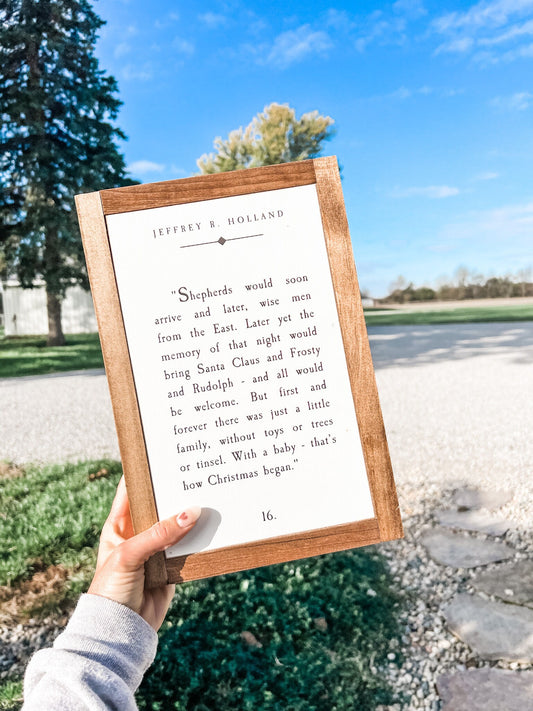 JEFFREY R. HOLLAND
"Shepherds would soon
arrive and later, wise men
from the East. Later yet the
memory of that night would
bring Santa Claus and Frosty
and Rudolph - and all would
be welcome. But first and
forever there was just a little
family, without toys or trees
or tinsel. With a baby - that's
how Christmas began."
16.